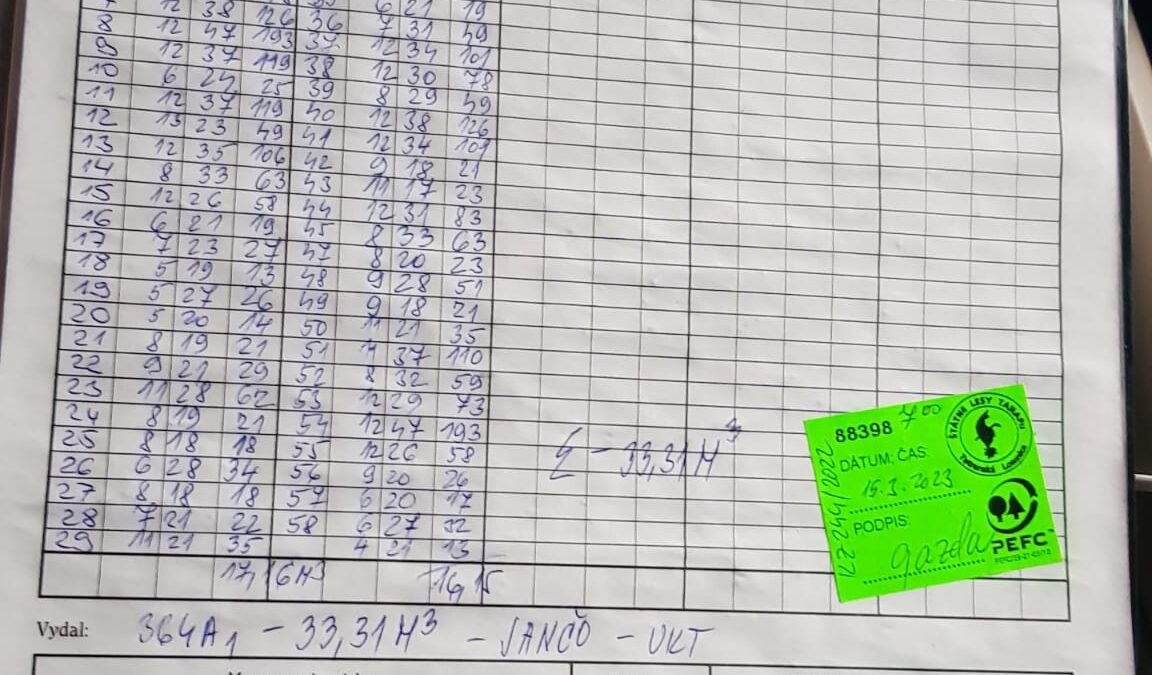 6 21 19
12 38 126 36 7 31 49
8 12 47 193 37 12 34 101
9 12 37 119 38 12 30 78
10 6 24 25 39 8 29 49
11 12 37 119 40 12 38 126
12 13 23 49 41 12 34 101
13 12 35 106 42 9 18 21
14 8 33 63 43 11 17 23
15 12 26 58 44 12 31 83
16 6 21 19 45 8 33 63
17 7 23 27 47 8 20 23
18 5 19 13 48 9 28 51
19 5 27 26 49 9 18 21
20 5 20 14 50 11 21 35
21 8 19 21 51 11 37 110
22 9 21 29 52 8 32 59
23 11 28 62 53 12 29 73
24 8 19 21 54 12 47 193
25 8 18 18 55 12 26 58
26 6 28 34 56 9 20 26
27 8 18 18 57 6 20 17
28 7 21 22 58 6 27 32
29 11 21 35 4 21 13
17,16 M3 16,15
Σ - 33,31 M3
88398 700
ŠTÁTNE LESY TANAPU
Tatranská Lomnica
DÁTUM; ČAS:
15.3.2023
PODPIS:
gazda
PEFC™
KZ 244/2022
Vydal: 364A1 - 33,31 M3 - JANČO - UKT